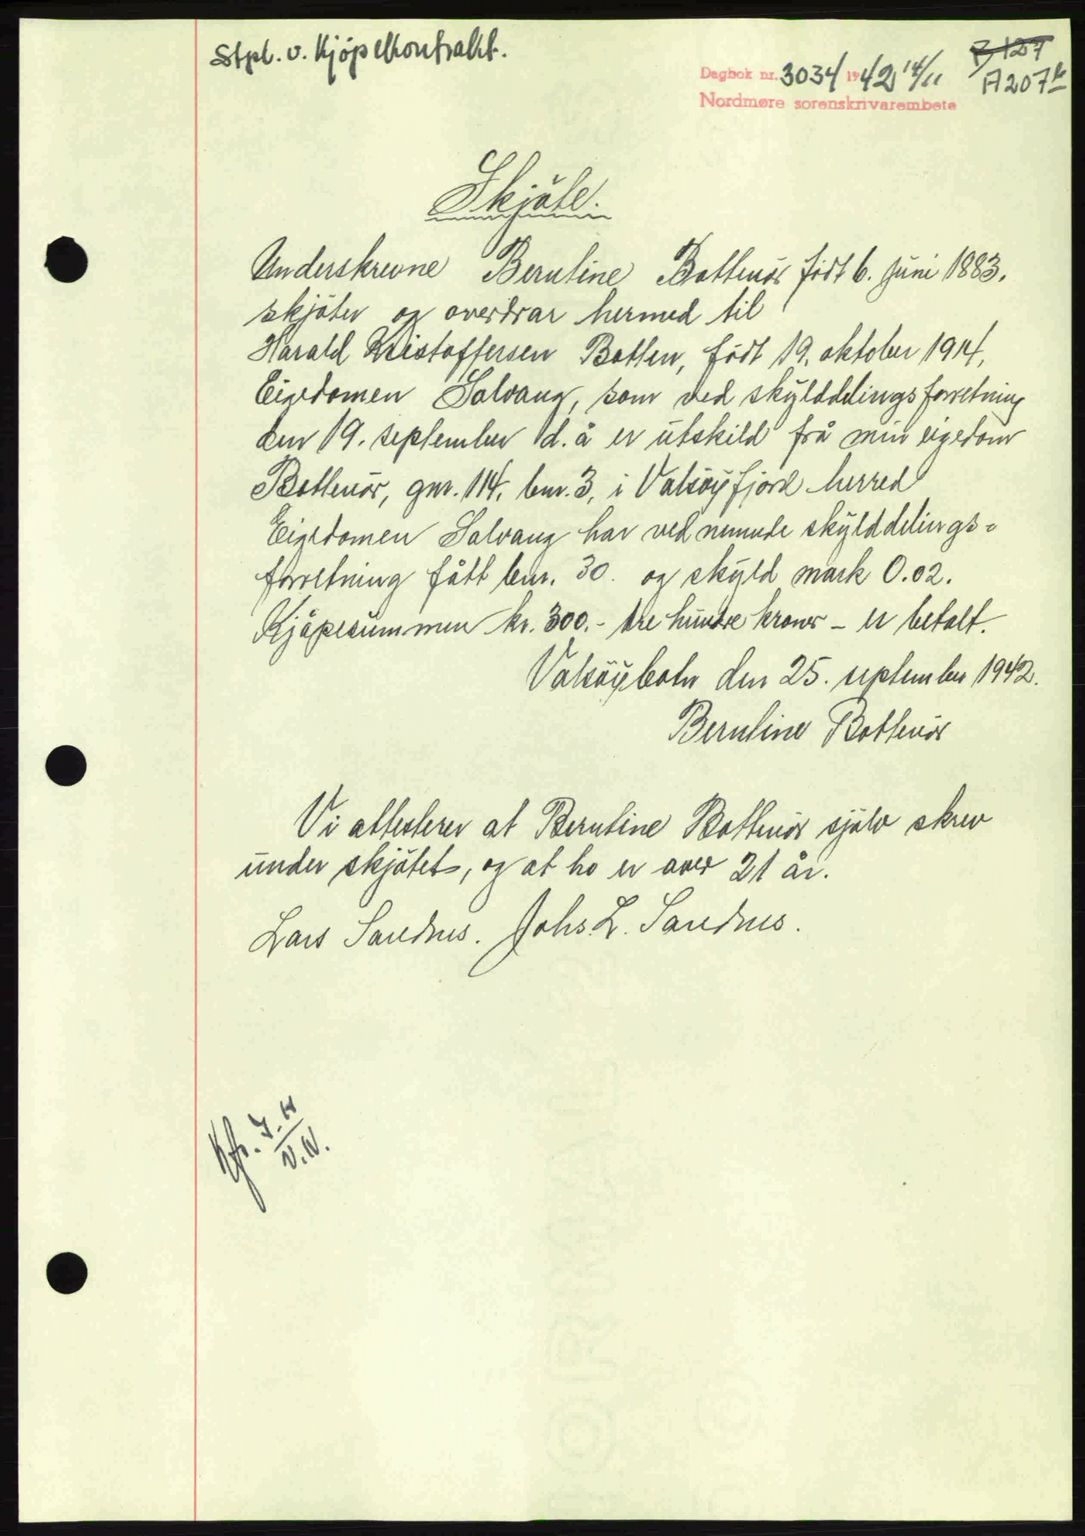 Stpl. v. Kjøpekontrakt.
B 127
Dagbok nr. 3034 1942 14/11 A207
Nordmøre sorenskrivarembete
Skjöte.
Underskrevne Berntine Bottenös født 6. juni 1883.
skjöter og overdrar hermed til
Harald Kristoffersen Botten, født 19. oktober 1914,
Eigedomen Solvang, som ved skylddelingsforretning
den 19. september d.å er utskild frå min eigedom
Bottenös, gnr. 114, bnr. 3, i Valsöyfjord herred
Eigedomen Solvang har ved nemnde skylddelings=
forretning fått bnr. 30. og skyld mark 0.02.
Kjöpesummen kr. 300.- tre hundre kroner - er betalt.
Valsöybotn den 25. september 1942.
Berntine Bottenös
Vi attesterer at Berntine Bottenös sjölv skrev
under skjötet, og at ho er over 21 år.
Lars Sandnes. Johs. L. Sandnes.
Kfr. J. H
N.N.